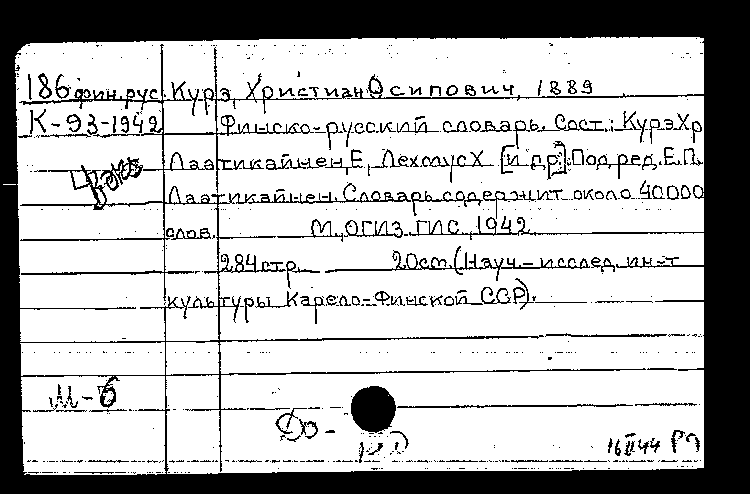 186 фин.рус. Курэ, Христиан Осипович, 1889
К-93-1942 Финско-русский словарь. Сост.: Курэ Хр
Лаатикайнен, Е, Лехмус Х [и др]. Под ред. Е.П.
4 экз Лаатикайнен. Словарь содержит около 40000
слов. М., ОГИЗ. ГИС, 1942
284 стр. 20 см. (Науч.-исслед. ин-т
культуры Карело-Финской ССР).
М-б
До-
16 II 44 РЛ